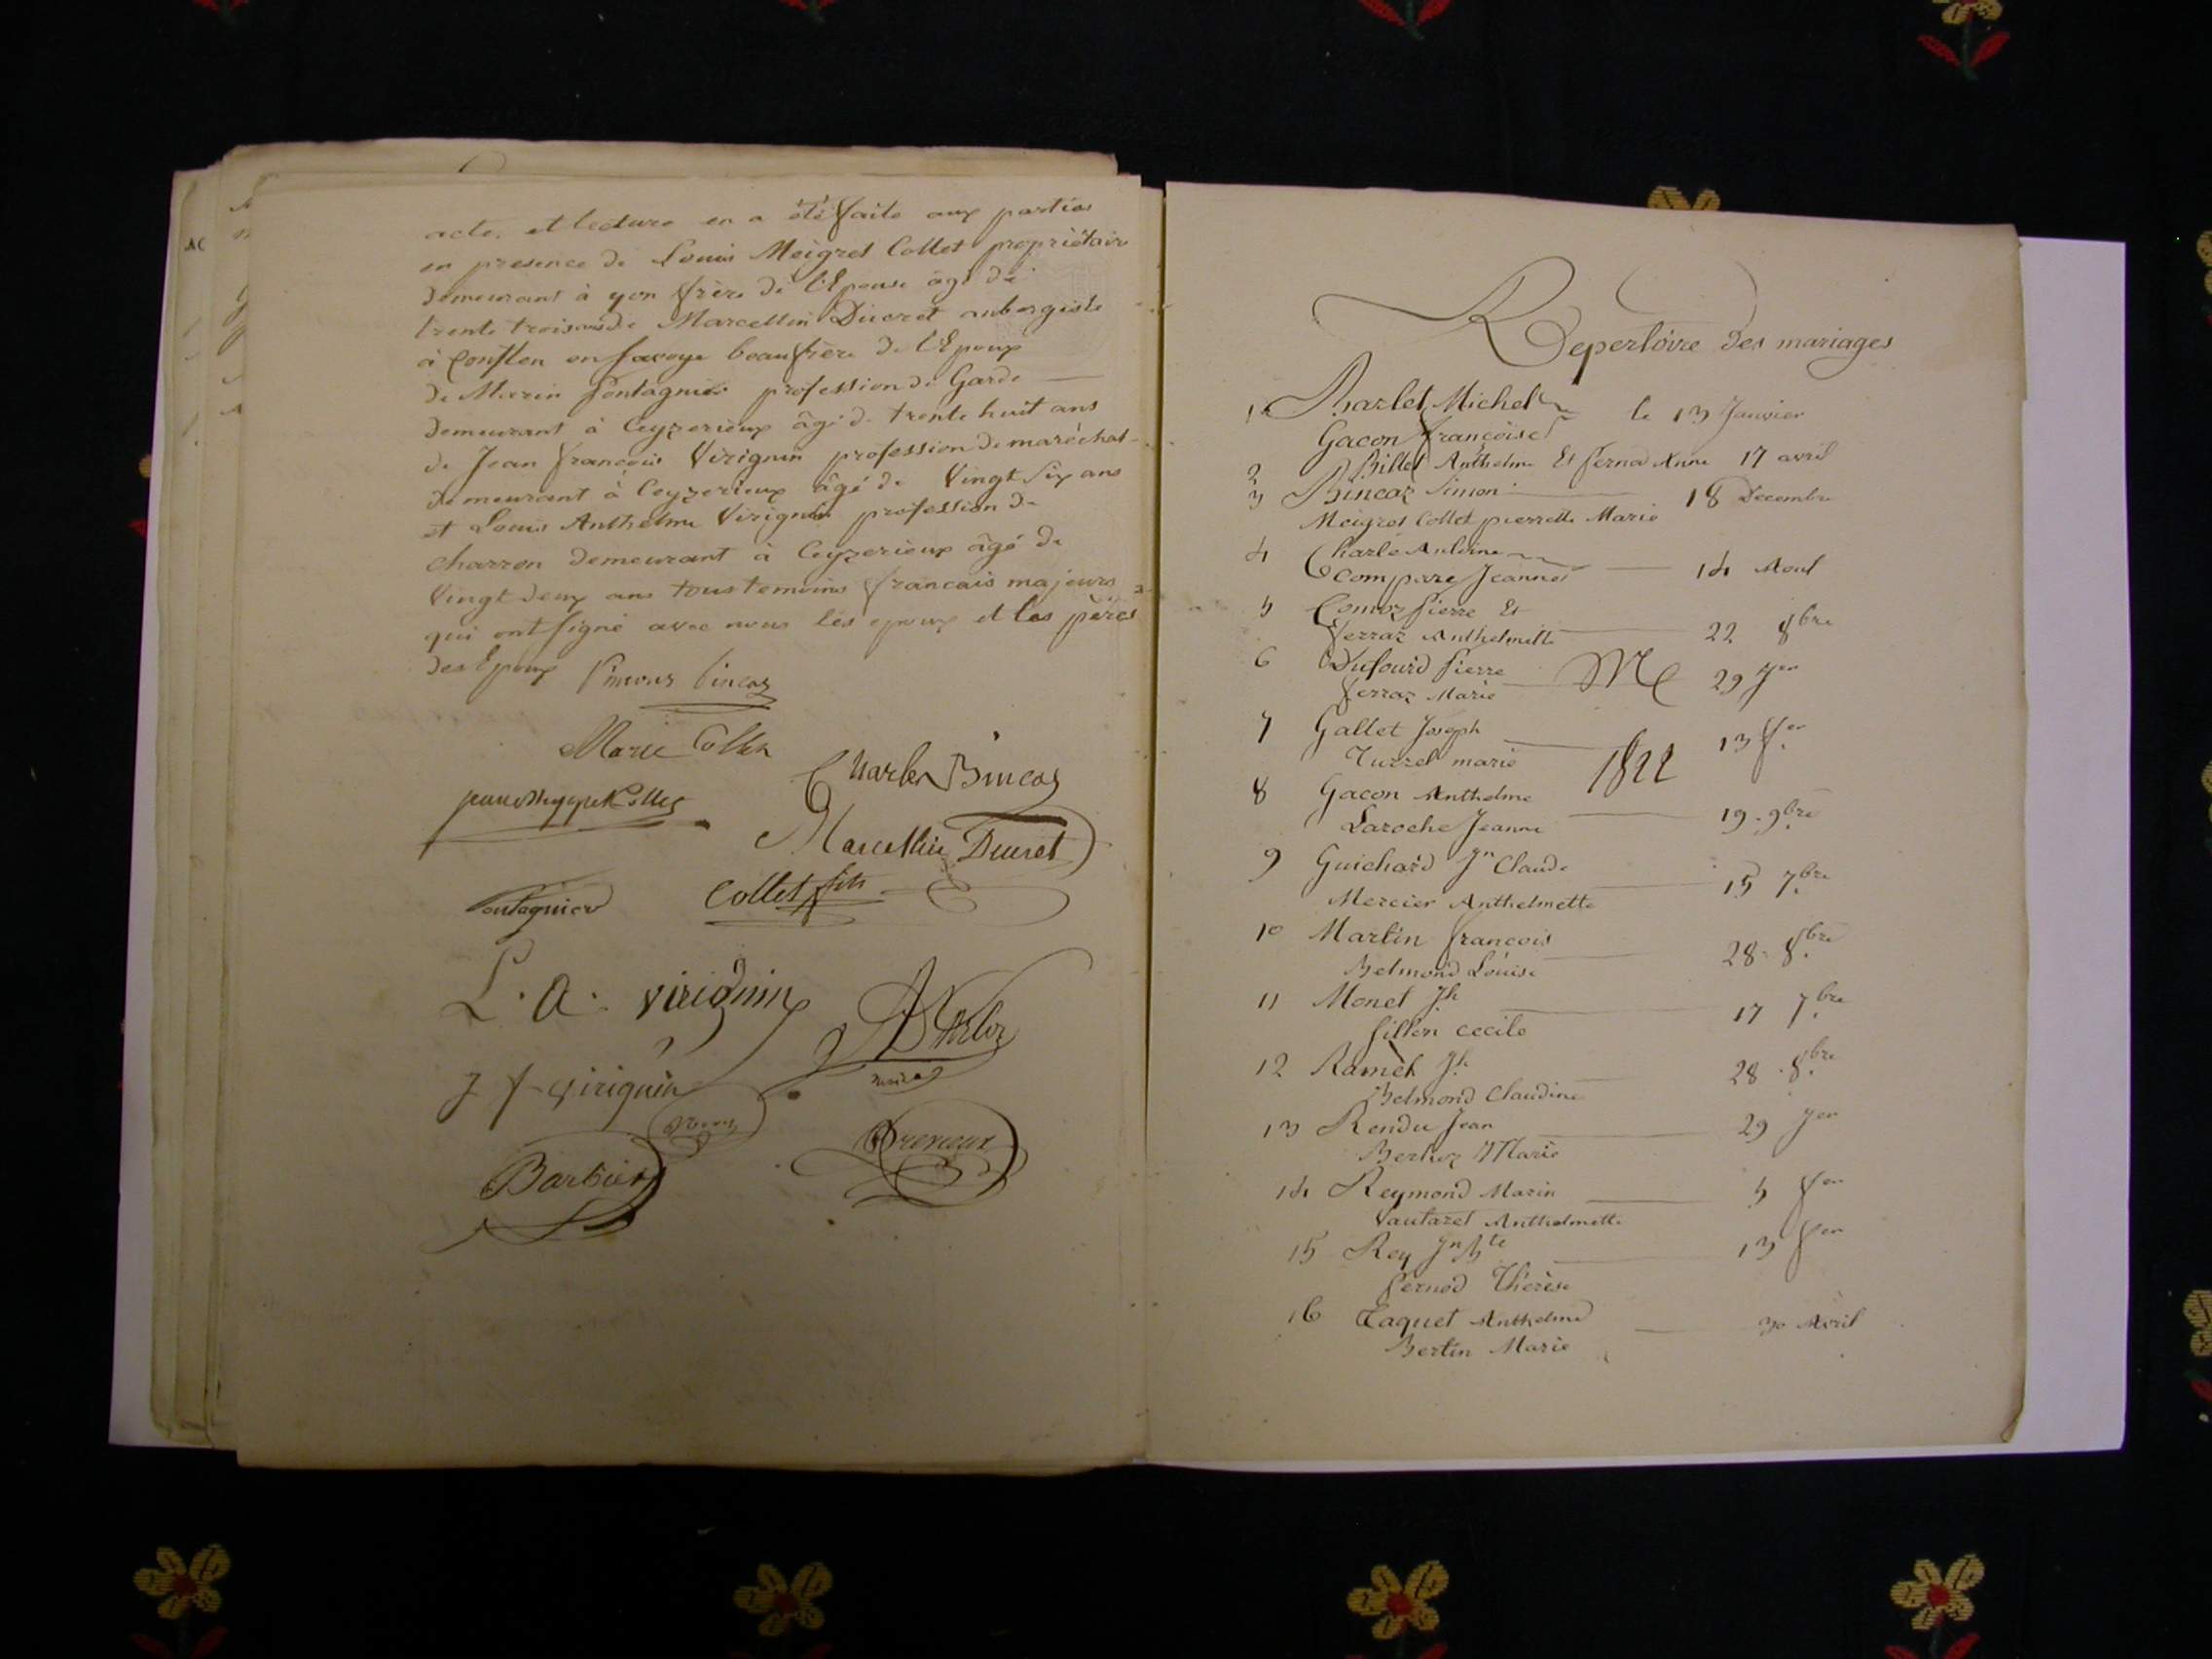 acte, et lecture en a été faite aux parties
en presence de Louis Meigret Collet propriétaire
demeurant à yon frère de l'Epouse âgé de
trente trois ans de Marcellin Ducret aubergiste
à Conflen en Savoye beaufrère de l'Epoux
de Marin Pontagnier profession de Garde
demeurant à Ceyzerieux âgé de trente huit ans
de Jean françois Virignin profession de maréchal
demeurant à Ceyzerieux âgé de Vingt Six ans
et Louis Anthelme Virignin profession de
charron demeurant à Ceyzerieux âgé de
Vingt deux ans tous temoins francais majeurs
qui ont Signé avec nous les epoux et les pères
des Epoux Simons Bincaz
Marie Collet
Charles Bincaz
Collet
Marcellin Ducret
Collet fils
Pontagnier
L. A. virignin
maire
J f virignin
Barbier
AC
Repertoire des mariages
1 Barlet Michel le 13 Janvier
Gacon françoise
2 Billet Anthelme Et Pernod Anne 17 avril
3 Bincaz Simon 18 Decembre
Meigret Collet pierrette Marie
4 Charle Antoine
Compere Jeanne 14 Aout
5 Comoz Pierre Et
ferraz Anthelmette 22 8bre
6 Dufourd Pierre
ferraz Marie M 29 Jer
7 Gallet Joseph 13 fer
Turrel marie 1822
8 Gacon Anthelme
Laroche Jeanne 19 9bre
9 Guichard Jn Claude
Mercier Anthelmette 15 7bre
10 Martin francois
Belmond Louise 28 8bre
11 Monet Jh 17 7bre
Fillin cecile
12 Ramel Jh
Belmond Claudine 28 8bre
13 Rendu Jean 29 Jer
Berlioz Marie
14 Reymond Marin 5 fer
Vautaret Anthelmette
15 Rey Jn Bte 13 fer
Pernod Thérèse
16 Taquet Anthelme
Bertin Marie 30 Avril